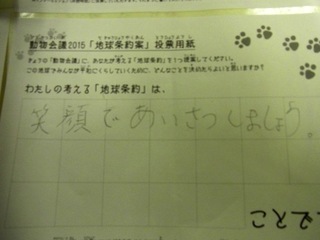 動物会議2015「地球条約案」投票用紙
きょうの「動物会議」に、あなたが考える「地球条約」を1つ提案してください。
この地球でみんなが平和にくらしていくために、どんなことを決めたらよいと思いますか?
わたしの考える「地球条約」は、
笑顔であいさつしましょう。